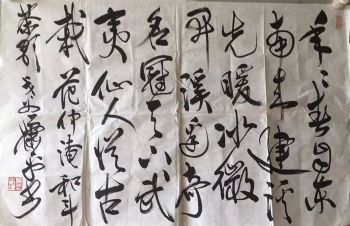 年々春自东
南来建溪
先暖冰微
开溪边奇
茗冠天下武
夷仙人从古
栽 范仲淹 和斗
茶歌 书